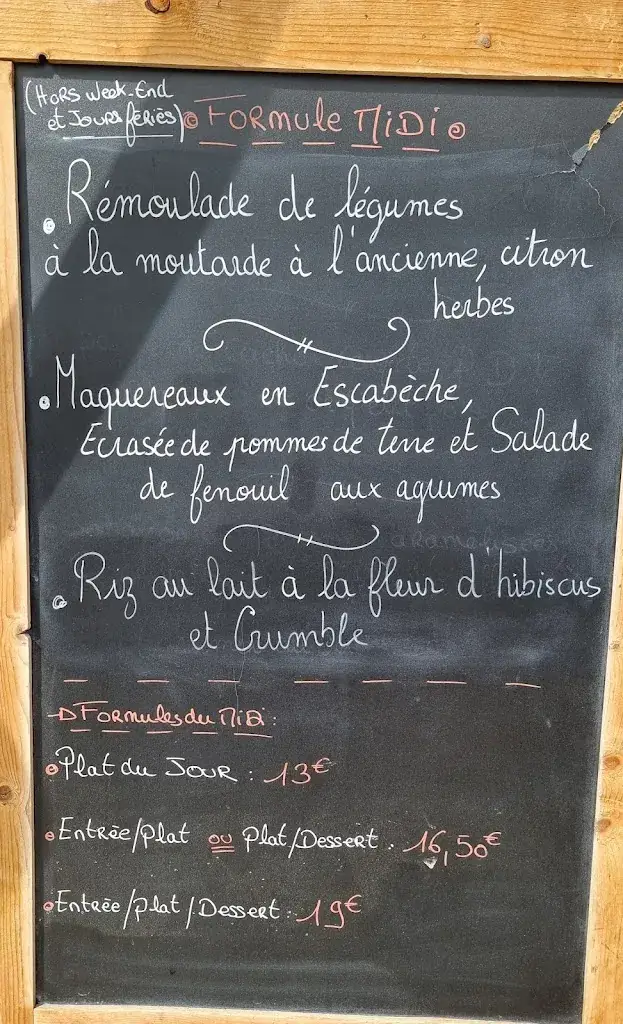 (HORS Week-End
et JOURS fériés)
FORMULE MIDI
Rémoulade de légumes
à la moutarde à l'ancienne, citron
herbes
Maquereaux en Escabèche,
Ecrasée de pommes de terre et Salade
de fenouil aux agrumes
Riz au lait à la fleur d'hibiscus
et Crumble
Formules du Midi :
Plat du JOUR : 13€
Entrée/Plat ou Plat/Dessert : 16,50€
Entrée/Plat/Dessert : 19€